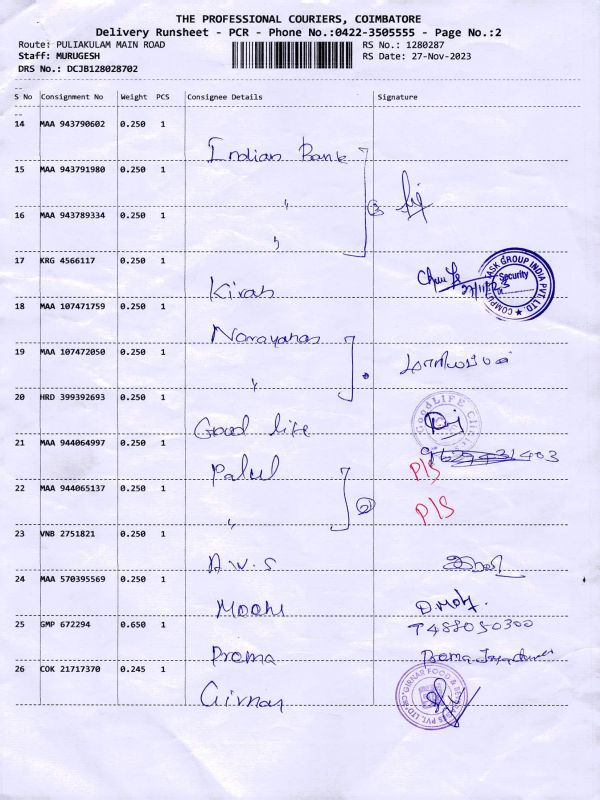 THE PROFESSIONAL COURIERS, COIMBATORE
Delivery Runsheet - PCR - Phone No.:0422-3505555 - Page No.:2
Route: PULIAKULAM MAIN ROAD RS No.: 1280287
Staff: MURUGESH RS Date: 27-Nov-2023
DRS No.: DCJB128028702
S No Consignment No Weight PCS Consignee Details Signature
14 MAA 943790602 0.250 1
Indian Bank
15 MAA 943791980 0.250 1
"
16 MAA 943789334 0.250 1
"
17 KRG 4566117 0.250 1
Kiran
COMPUTASK GROUP INDIA PVT. LTD
Security
18 MAA 107471759 0.250 1
Narayanan
19 MAA 107472050 0.250 1
"
20 HRD 399392693 0.250 1
Good life
GoodLIFE
21 MAA 944064997 0.250 1
P/S
22 MAA 944065137 0.250 1
" P/S
23 VNB 2751821 0.250 1
A.V.S
24 MAA 570395569 0.250 1
25 GMP 672294 0.650 1
Prema Prema
26 COK 21717370 0.245 1
Girnar
GIRNAR FOOD &
PVT. LTD